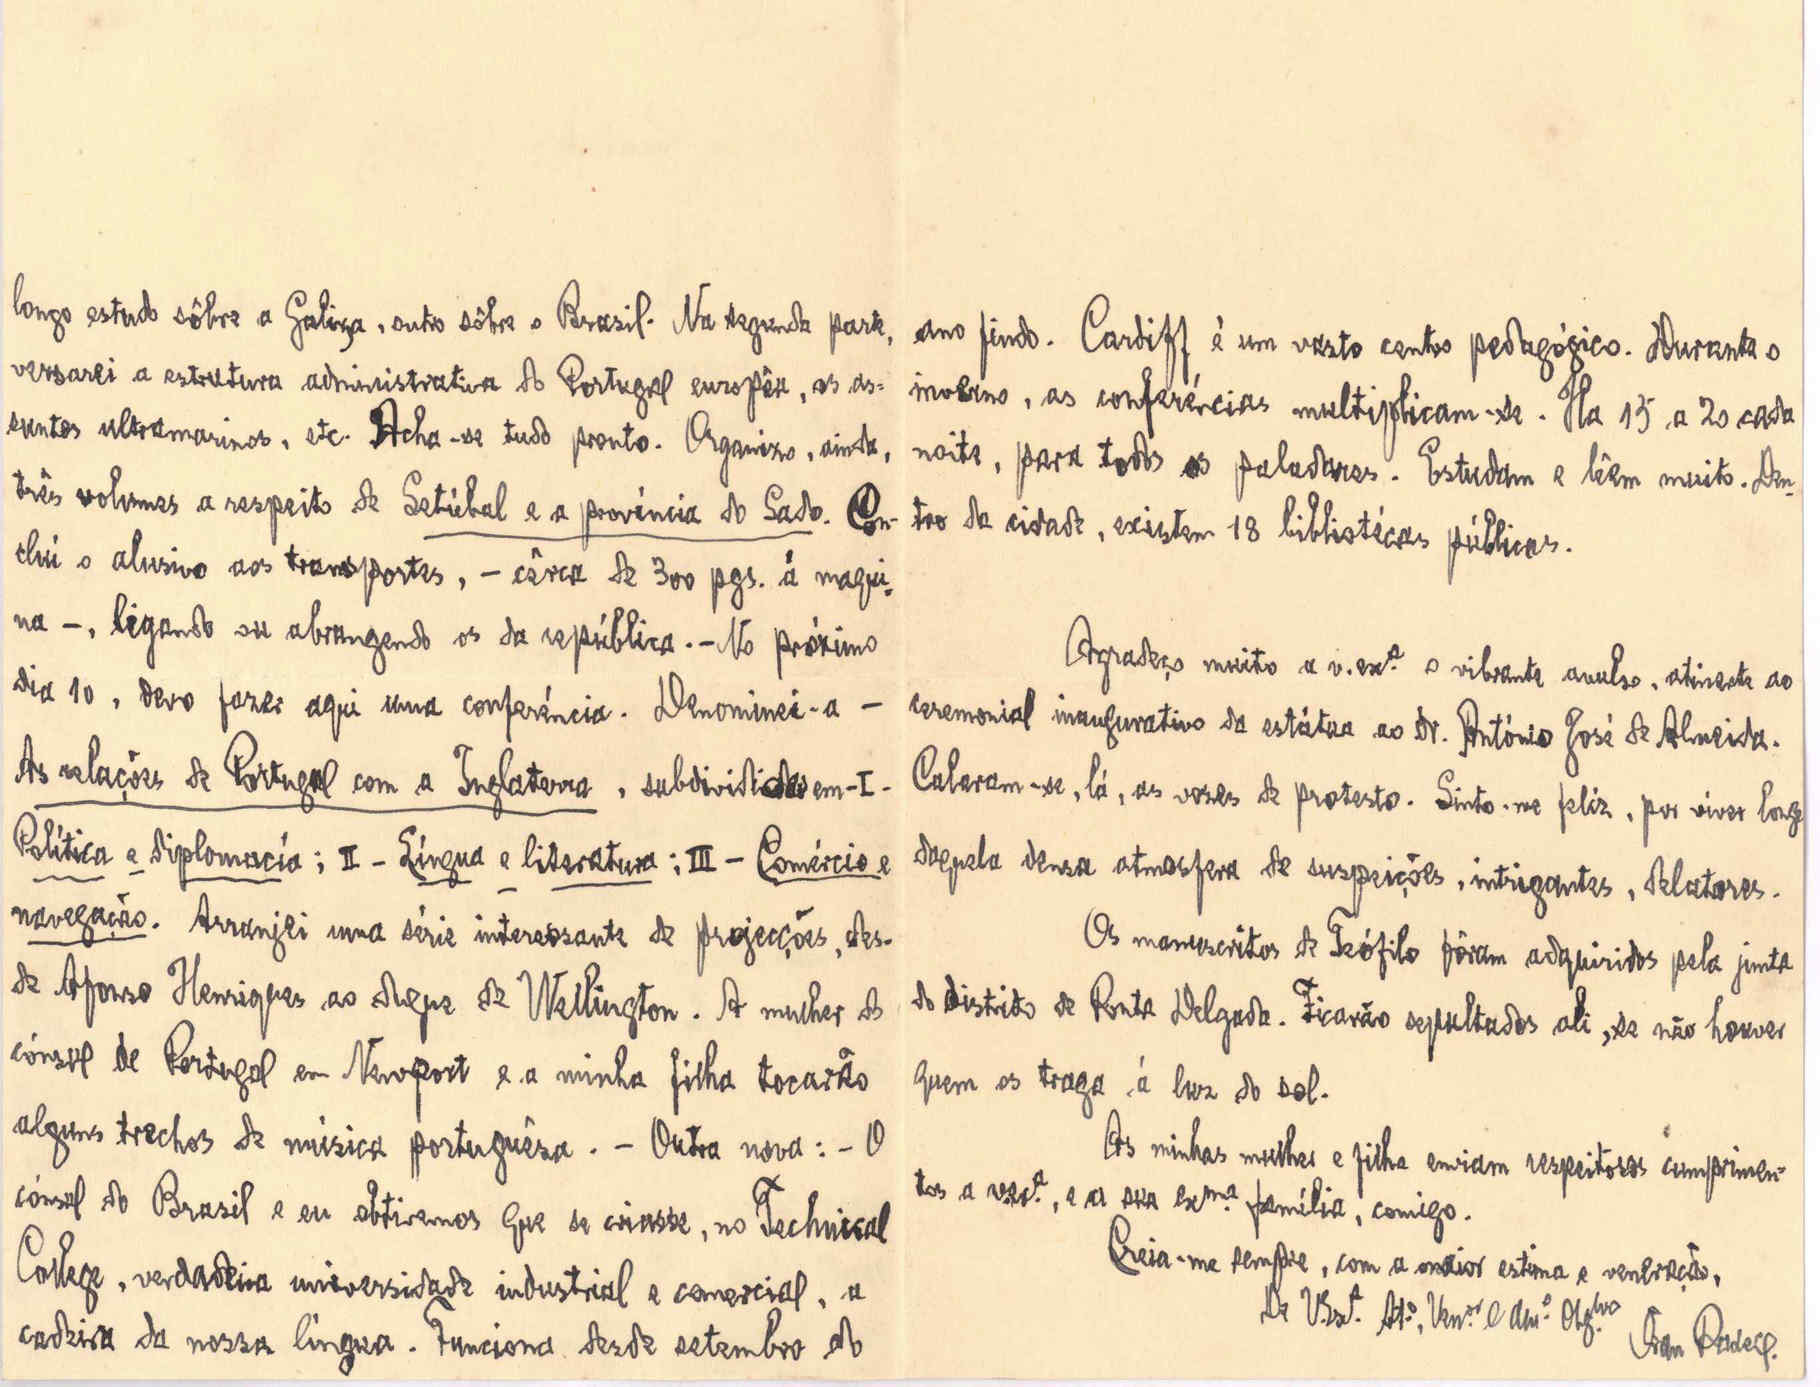 longo estudo sôbre a Galiza, outro sôbre o Brasil. Na segunda parte,
versarei a estrutura administrativa do Portugal europêu, os as=
suntos ultramarinos, etc. Acha-se tudo pronto. Organizo, ainda,
três volumes a respeito de Setúbal e a província do Sado. Con-
cluí o alusivo aos transportes, – cêrca de 300 pgs. á maqui=
na –, ligando ou abrangendo os da república. – No próximo
dia 10, devo fazer aqui uma conferência. Denominei-a –
As relações de Portugal com a Inglaterra, subdivididas em – I –
Política e diplomacía; II – Língua e literatura; III – Comércio e
navegação. Arranjei uma série interessante de projecções, des-
de Afonso Henriques ao duque de Wellington. A mulher do
cónsul de Portugal em Newport e a minha filha tocarão
alguns trechos de música portuguêsa. – Outra nova: – O
cónsul do Brasil e eu obtivemos que se criasse, no Technical
College, verdadeira universidade industrial e comercial, a
cadeira da nossa língua. Funciona desde setembro do
ano findo. Cardiff é um vasto centro pedagógico. Durante o
inverno, as conferências multiplicam-se. Ha 15 a 20 cada
noite, para todos os paladares. Estudam e lêem muito. Den-
tro da cidade, existem 18 bibliotécas públicas.
Agradeço muito a v. ex.ª o vibrante avulso, atinente ao
ceremonial inaugurativo da estátua ao dr. António José de Almeida.
Calaram-se, lá, as vozes de protesto. Sinto-me felíz, por viver longe
daquela densa atmosfera de suspeições, intrigantes, delatores.
Os manuscritos de Teófilo fôram adquiridos pela junta
do distrito de Ponta Delgada. Ficarão sepultados ali, se não houver
quem os traga á luz do sol.
As minhas mulher e filha enviam respeitosos cumprimen-
tos a v. ex.ª, e a sua ex.ma família, comigo.
Creia-me sempre, com a maior estima e veneração,
De V. Ex.ª At.º, Ven.or e Am.º Obg.
Fran